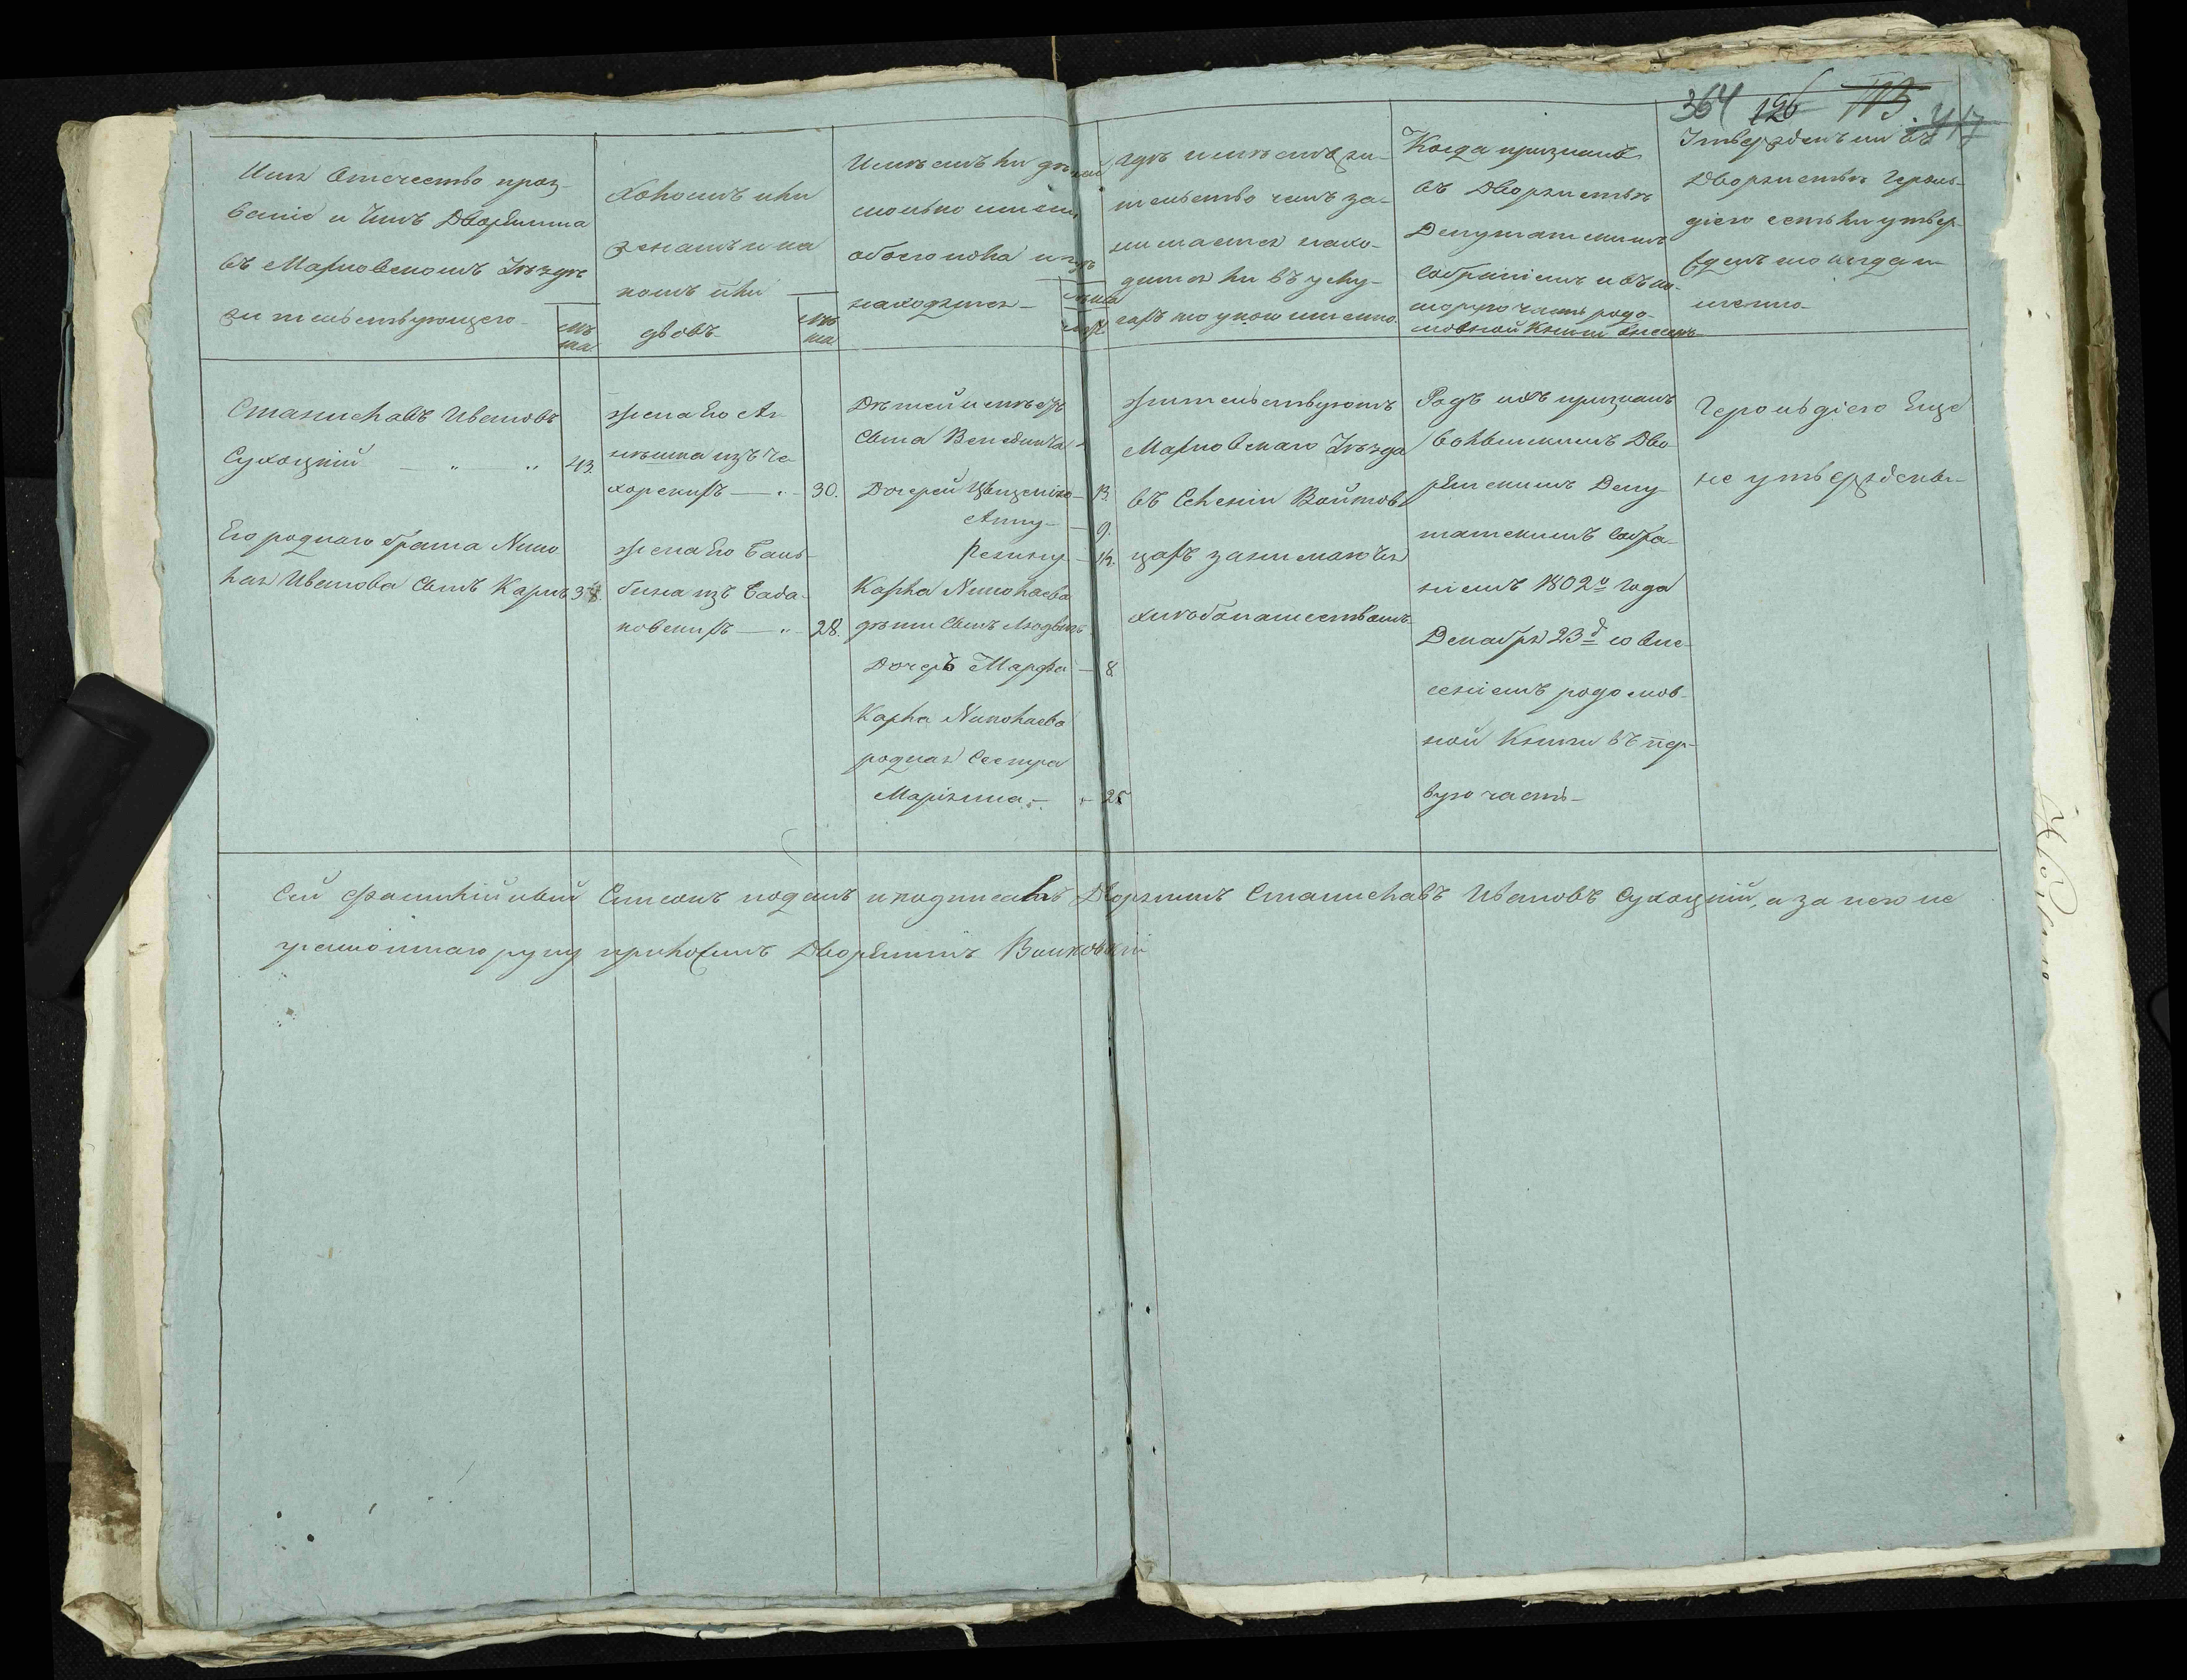 364 126 113. 417
Имя Отечество проз-
ваніе и Чинъ Дворянина
въ Марковскомъ Уѣздѣ
жительствующего
лѣ
та.
Холостъ или
женатъ и на
комъ или
вдовъ
лѣ
та
Имѣетъ ли дѣтей
сколько имен.
обоего пола и гдѣ
находятся
лѣта
Гдѣ имѣетъ жи-
тельство чемъ за-
нимается нахо-
дится ли въ у слу-
жбѣ то у кого именно.
Когда признанъ
въ Дворянствѣ
Депутатскимъ
Собраніемъ и въ ко-
торую часть родо-
словной Книги внесенъ
Утвержденъ ли въ
Дворянствѣ Героль-
діею естьли утвер-
жденъ то когда и-
менно
Станиславъ Ивановъ
Сухоцкій — " " 43.
Его роднаго брата Нико
лая Ивановa Сынъ Карлъ 38.
Жена Его Аг-
нѣшка изъ Че-
хорскихъ — " 30.
Жена Его Баль-
бина изъ Бада-
ковскихъ — " 28.
Дѣтей имѣетъ
Сына Венедикта -
Дочерей Винценію — 13.
Анну — 9.
Регину — 12.
Карла Николаева
дѣти Сынъ Людвигъ
Дочерь Марфа — 8
Карла Николаева
родная Сестра
Маріяна — " 25
Жительствуютъ
Марковскаго Уѣзда
въ Селеніи Войтов
цахъ занимаются
хлѣбопашествомъ
Родъ ихъ признанъ
Волынскимъ Дво
рянскимъ Депу-
татскимъ Собра-
ніемъ 1802го года
Декабря 23д со вне-
сеніемъ родослов-
ной Книги въ пер-
вую часть
Герольдіею Еще
не утверждены
Сей Фамилійный Списокъ подалъ и подписалъ Дворянинъ Станиславъ Ивановъ Сухоцкій, а за него не
грамотнаго руку приложилъ Дворянинъ Вилковскій